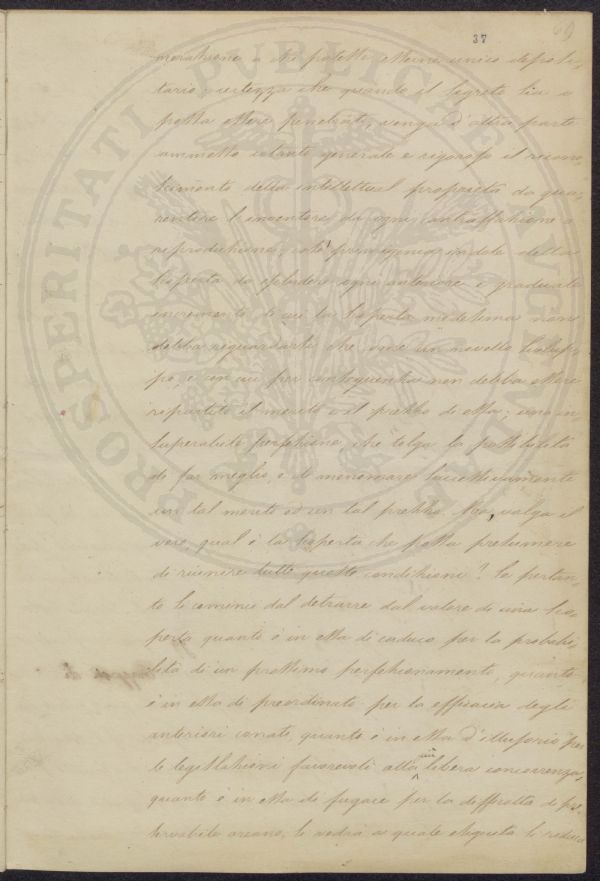 37
69
PROSPERITATI PUBLICAE AUGENDAE
menzione a chi potesse esserne unico deposi-
tario; certezza che quando il segreto sia o
possa essere penetrato, venga d'altra parte
ammesso intanto generale e rigoroso il ricono-
scimento della intellettual proprietà da gua-
rentire l'inventore da ogni contraffazione o
riproduzione; così primigenia indole della
scoperta da escludere ogni anteriore e graduale
incremento di cui la scoperta medesima non
debba riguardarsi che come un novello svilup-
po, e con cui per conseguenza non debba essere
repartito il merito o il prezzo di essa; una in-
superabile perfezione, che tolga la possibilità
di far meglio, e di menomare successivamente
un tal merito ed un tal prezzo. Ora, valga il
vero, qual è la scoperta che possa presumere
di riunire tutte queste condizioni? Se pertan-
to si cominci dal detrarre dal valore di una sco-
perta quanto è in essa di caduco per la probabi-
lità di un prossimo perfezionamento, quanto
è in essa di preordinato per la efficacia degli
anteriori conati, quanto è in essa d'illusorio per
le legislazioni favorevoli alla più libera concorrenza,
quanto è in essa di fugace per la difficoltà di pre-
servabile arcano, si vedrà a quale si reduca